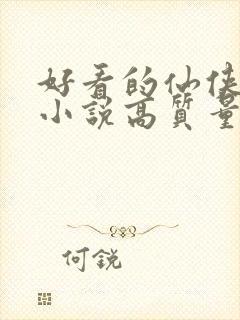 好看的仙侠
小説高質量
何鋭